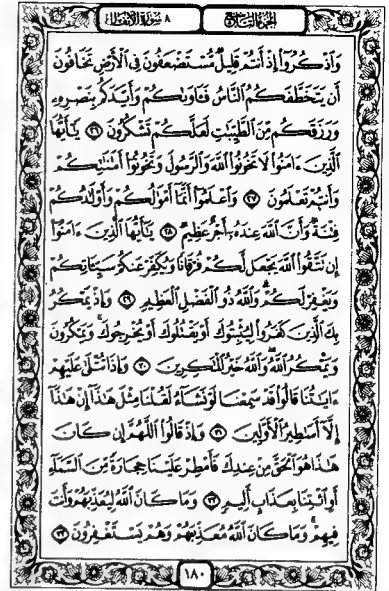 الجزء التاسع
٨ سورة الأنفال
وَاذْكُرُوا إِذْ أَنتُمْ قَلِيلٌ مُّسْتَضْعَفُونَ فِي الْأَرْضِ تَخَافُونَ
أَن يَتَخَطَّفَكُمُ النَّاسُ فَآوَاكُمْ وَأَيَّدَكُم بِنَصْرِهِ
وَرَزَقَكُم مِّنَ الطَّيِّبَاتِ لَعَلَّكُمْ تَشْكُرُونَ ٢٦ يَا أَيُّهَا
الَّذِينَ ءَامَنُوا لَا تَخُونُوا اللَّهَ وَالرَّسُولَ وَتَخُونُوا أَمَانَاتِكُمْ
وَأَنتُمْ تَعْلَمُونَ ٢٧ وَاعْلَمُوا أَنَّمَا أَمْوَالُكُمْ وَأَوْلَادُكُمْ
فِتْنَةٌ وَأَنَّ اللَّهَ عِندَهُ أَجْرٌ عَظِيمٌ ٢٨ يَا أَيُّهَا الَّذِينَ ءَامَنُوا
إِن تَتَّقُوا اللَّهَ يَجْعَل لَّكُمْ فُرْقَانًا وَيُكَفِّرْ عَنكُمْ سَيِّئَاتِكُمْ
وَيَغْفِرْ لَكُمْ وَاللَّهُ ذُو الْفَضْلِ الْعَظِيمِ ٢٩ وَإِذْ يَمْكُرُ
بِكَ الَّذِينَ كَفَرُوا لِيُثْبِتُوكَ أَوْ يَقْتُلُوكَ أَوْ يُخْرِجُوكَ وَيَمْكُرُونَ
وَيَمْكُرُ اللَّهُ وَاللَّهُ خَيْرُ الْمَاكِرِينَ ٣٠ وَإِذَا تُتْلَى عَلَيْهِمْ
ءَايَاتُنَا قَالُوا قَدْ سَمِعْنَا لَوْ نَشَاءُ لَقُلْنَا مِثْلَ هَذَا إِنْ هَذَا
إِلَّا أَسَاطِيرُ الْأَوَّلِينَ ٣١ وَإِذْ قَالُوا اللَّهُمَّ إِن كَانَ
هَذَا هُوَ الْحَقَّ مِنْ عِندِكَ فَأَمْطِرْ عَلَيْنَا حِجَارَةً مِّنَ السَّمَاءِ
أَوِ ائْتِنَا بِعَذَابٍ أَلِيمٍ ٣٢ وَمَا كَانَ اللَّهُ لِيُعَذِّبَهُمْ وَأَنتَ
فِيهِمْ وَمَا كَانَ اللَّهُ مُعَذِّبَهُمْ وَهُمْ يَسْتَغْفِرُونَ ٣٣
١٨٠